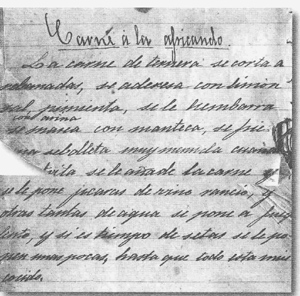 Carne á la africando.
La carne de ternera se corta a
rebanadas, se aderesa con limón
sal, pimienta, se le hembarra
con arina
se masia con manteca, se frie
una sebolleta muy menuda cuando
frita se le añade la carne y
se le pone jicaras de vino rancio, y
otras tantas de agua se pone a fuego
lento, y si es tiempo de setas se le po
nen unas pocas, hasta que todo esta muy
cocido.